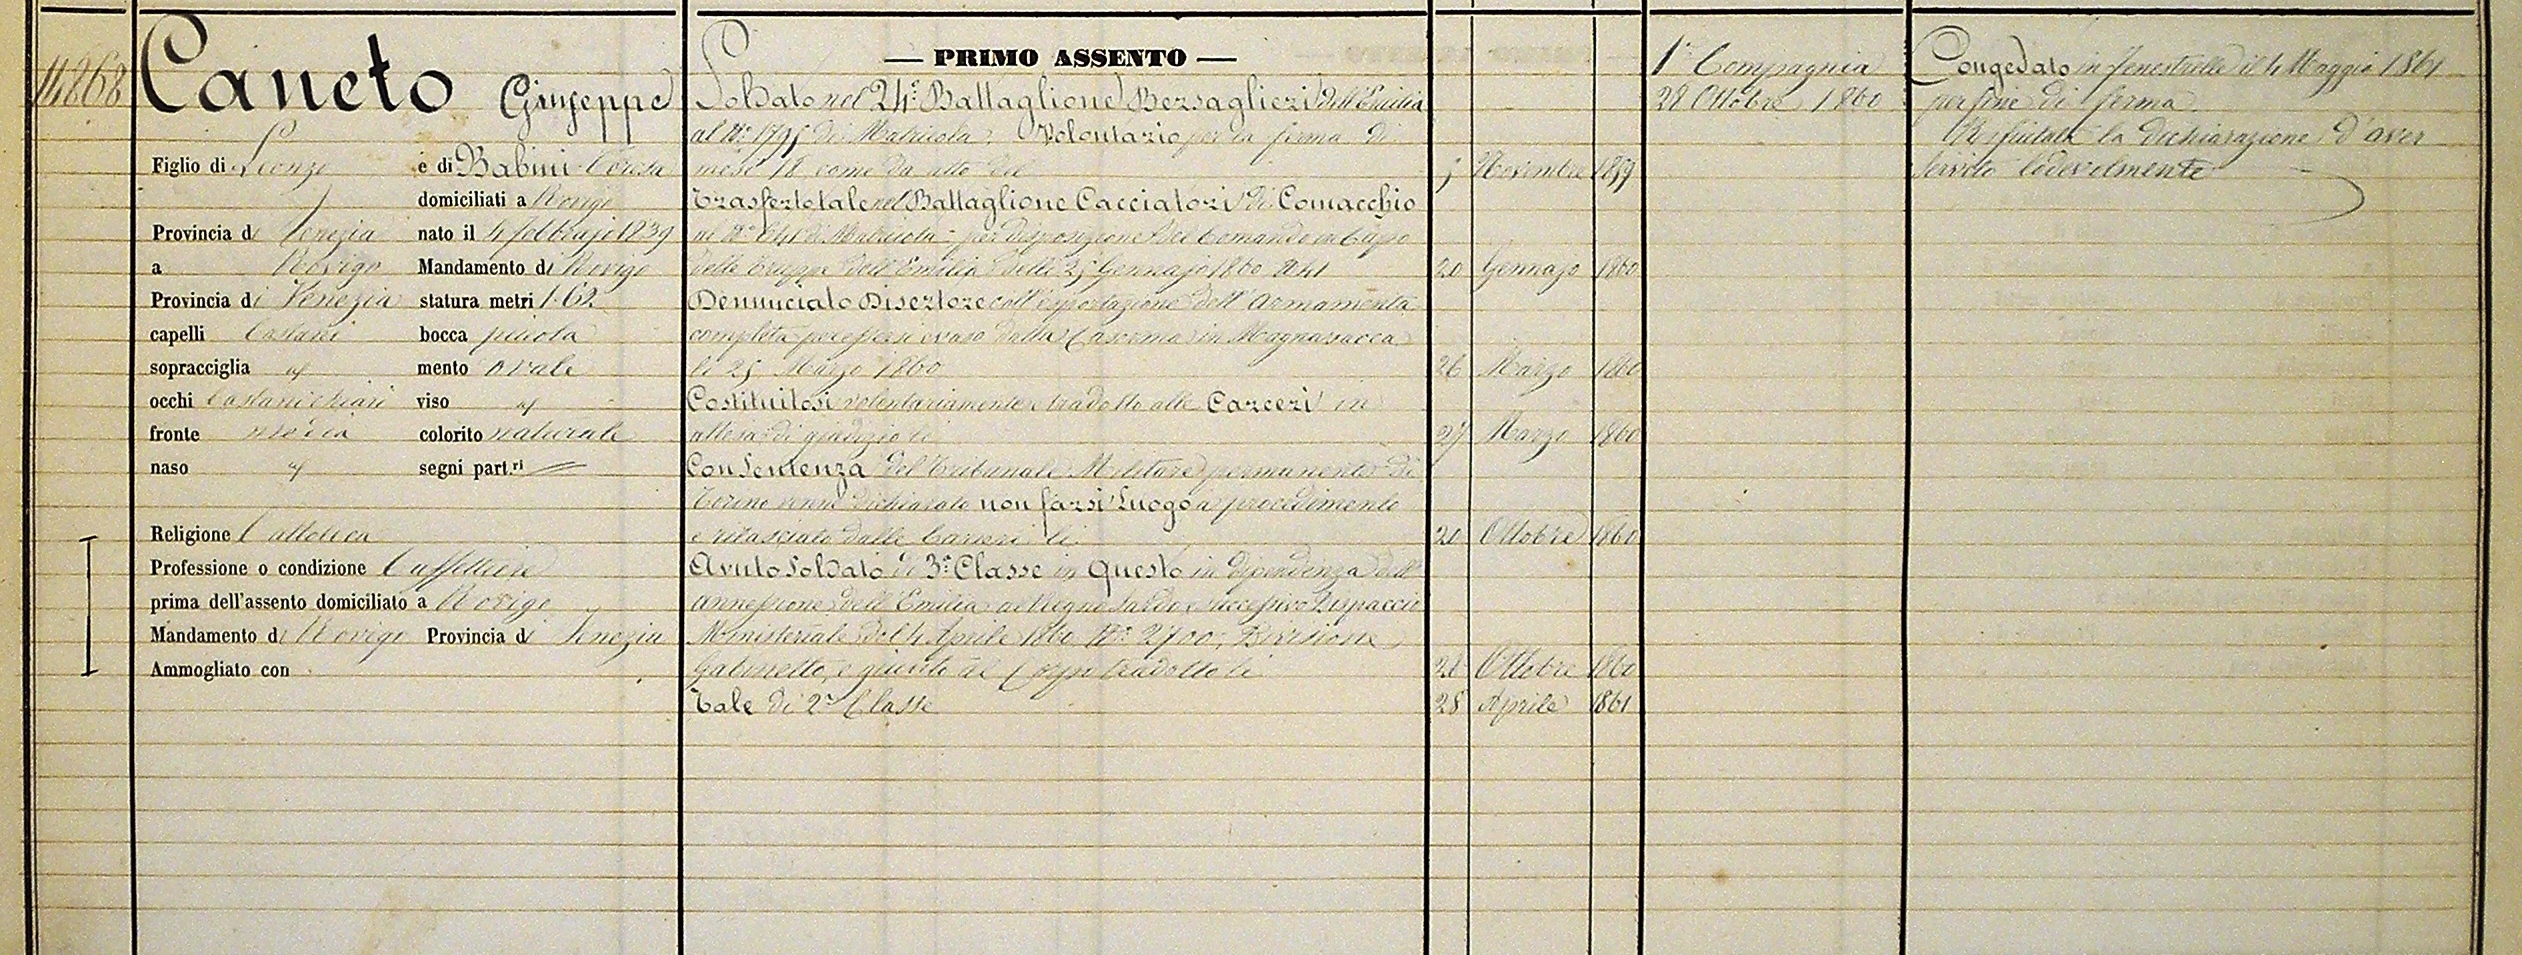 14868
Caneto Giuseppe
Figlio di Lorenzo e di Babini Teresa
domiciliati a Rovigo
Provincia di Venezia nato il 4 febbrajo 1839
a Rovigo Mandamento di Rovigo
Provincia di Venezia statura metri 1.62
capelli Castani bocca piccola
sopracciglia id mento ovale
occhi Castani chiari viso id
fronte media colorito naturale
naso id segni part.ri
Religione Cattolica
Professione o condizione Caffettiere
prima dell'assento domiciliato a Rovigo
Mandamento di Rovigo Provincia di Venezia
Ammogliato con
— PRIMO ASSENTO —
Soldato nel 24° Battaglione Bersaglieri dell'Emilia
al N° 1795 di Matricola, Volontario per la ferma di
mesi 18 come da atto del 5 Novembre 1859
Trasferto tale nel Battaglione Cacciatori di Comacchio
al N° 641 di Matricola per disposizione del Comando in Capo
delle Truppe dell'Emilia delli 25 Gennajo 1860 N 41 20 Gennajo 1860
Denunciato Disertore coll'esportazione dell'armamento
completo per essersi evaso dalla Caserma in Magnavacca
li 25 Marzo 1860 26 Marzo 1860
Costituitosi volontariamente e tradotto alle Carceri in
attesa di giudizio li 27 Marzo 1860
Con Sentenza del Tribunale Militare permanente di
Torino venne dichiarato non farsi luogo a procedimento
e rilasciato dalle Carceri li 20 Ottobre 1860
Avuto Soldato di 3a Classe in Questo in dipendenza dell'
annessione dell'Emilia al Regno Sardo e successivo Dispaccio
Ministeriale del 4 Aprile 1860 N° 2700, Divisione
Gabinetto, e giunto al Corpo tradotto li 21 Ottobre 1860
Tale di 2a Classe 28 Aprile 1861
1a Compagnia
28 Ottobre 1860
Congedato in Fenestrelle il 4 Maggio 1861
per fine di ferma
Rifiutata la dichiarazione d'aver
servito lodevolmente